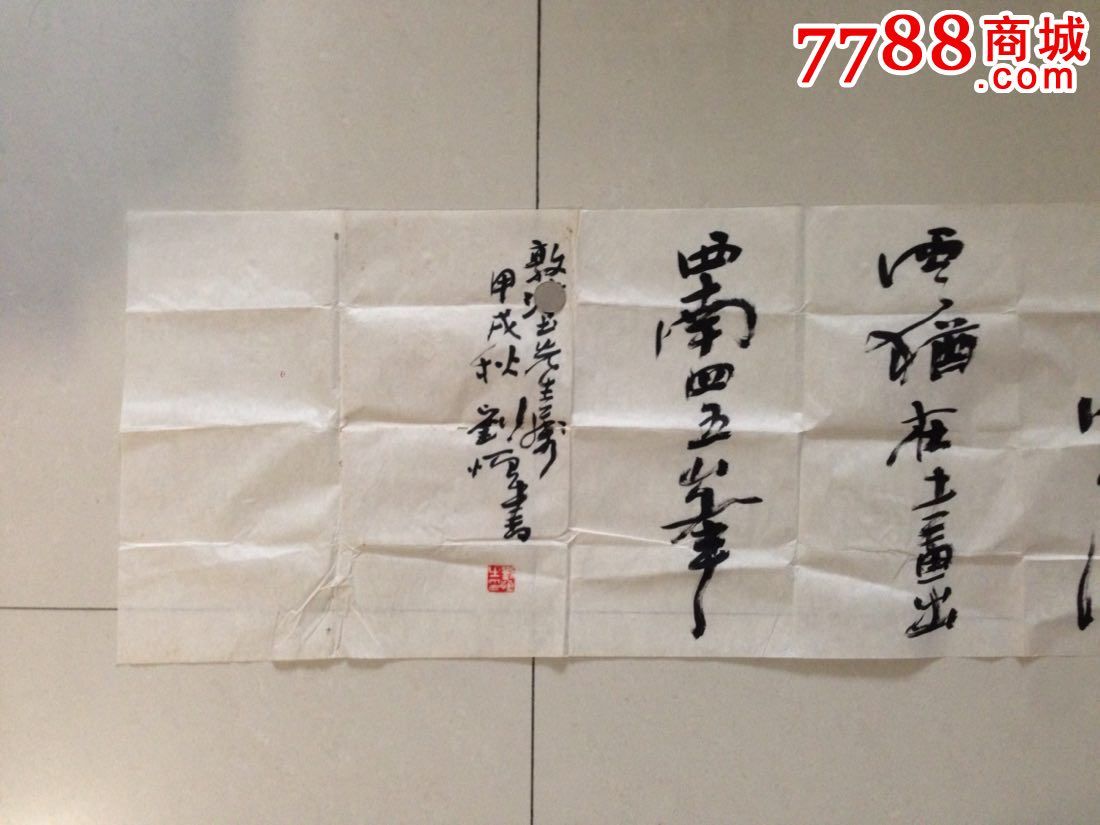 7788商城
.com
雲猶在畫出
西南四五峯
敦 先生屬
甲戌秋 劉恒書